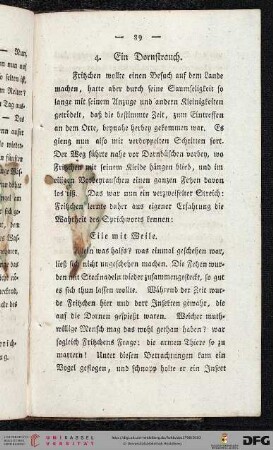 — 89 —
4. Ein Dornstrauch.
Fritzchen wollte einen Besuch auf dem Lande
machen, hatte aber durch seine Saumseligkeit so
lange mit seinem Anzuge und andern Kleinigkeiten
getrödelt, daß die bestimmte Zeit, zum Eintreffen
an dem Orte, beynahe herbey gekommen war. Es
gieng nun also mit verdoppelten Schritten fort.
Der Weg führte nahe vor Dornbüschen vorbey, wo
Fritzchen mit seinem Kleide hängen blieb, und im
eiligen Vorbeyrauschen einen ganzen Fetzen davon
los riß. Das war nun ein verzweifelter Streich:
Fritzchen lernte daher aus eigener Erfahrung die
Wahrheit des Sprichworts kennen:
Eile mit Weile.
Allein was halfs? was einmal geschehen war,
ließ sich nicht ungeschehen machen. Die Fetzen wur-
den mit Stecknadeln wieder zusammengesteckt, so gut
es sich thun lassen wollte. Während der Zeit wur-
de Fritzchen hier und dort Insekten gewahr, die
auf die Dornen gespießt waren. Welcher muth-
willige Mensch mag das wohl gethan haben? war
sogleich Fritzchens Frage: die armen Thiere so zu
martern! Unter diesen Betrachtungen kam ein
Vogel geflogen, und schnapp holte er ein Insekt